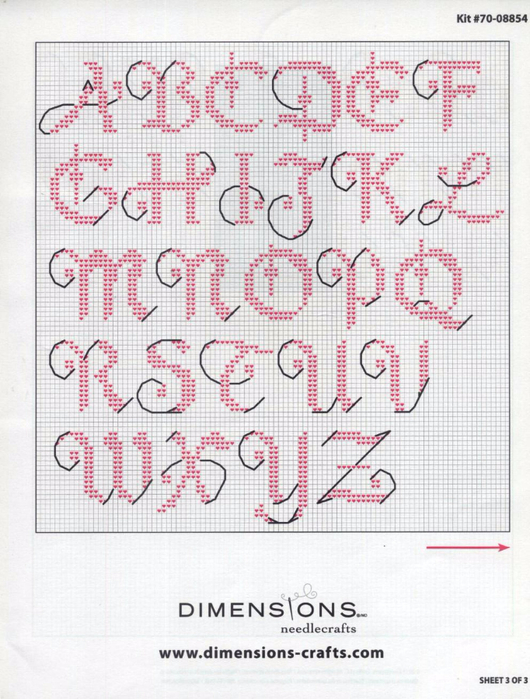 Kit #70-08854
A B C D E F
G H I J K L
M N O P Q
R S T U V
W X Y Z
DIMENSIONS
needlecrafts
www.dimensions-crafts.com
SHEET 3 OF 3